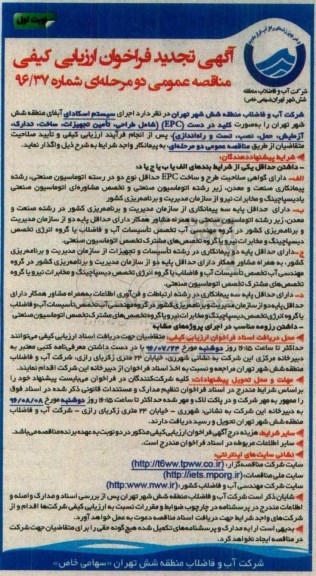 نوبت اول
آگهی تجدید فراخوان ارزیابی کیفی
مناقصه عمومی دو مرحله‌ای شماره ۹۶/۳۷
شرکت آب و فاضلاب منطقه
شش شهر تهران(سهامی خاص)
شرکت آب و فاضلاب منطقه شش شهر تهران در نظر دارد اجرای سیستم اسکادای آبفای منطقه شش
شهر تهران را بصورت کلید در دست (EPC) (شامل طراحی، تأمین تجهیزات، ساخت، تدارک،
آزمایش، حمل، نصب، تست و راه‌اندازی) پس از انجام فرآیند ارزیابی کیفی و تأیید صلاحیت
متقاضیان از طریق مناقصه عمومی دو مرحله‌ای، به پیمانکار واجد شرایط به شرح ذیل واگذار نماید.
شرایط پیشنهاددهندگان:
- داشتن حداقل یکی از شرایط بندهای الف یا ب یا ج یا د:
الف- دارای گواهی صلاحیت طرح و ساخت EPC حداقل نوع دو در رسته اتوماسیون صنعتی، رشته
پیمانکاری صنعت و معدن، زیر رشته اتوماسیون صنعتی و تخصص مشاوره‌ای اتوماسیون صنعتی
پایدیسپاچینگ و مخابرات نیرو از سازمان مدیریت و برنامه‌ریزی کشور
ب- دارای حداقل پایه سه پیمانکاری از سازمان مدیریت و برنامه‌ریزی کشور در رشته صنعت و
معدن، زیر رشته اتوماسیون صنعتی به همراه مشاور همکار دارای حداقل پایه دو از سازمان مدیریت
و برنامه‌ریزی کشور در گروه مهندسی آب تخصص تأسیسات آب و فاضلاب یا گروه انرژی تخصص
دیسپاچینگ و مخابرات نیرو یا گروه تخصص‌های مشترک تخصص اتوماسیون صنعتی.
ج- دارای حداقل پایه دو پیمانکاری در رشته تأسیسات و تجهیزات از سازمان مدیریت و برنامه‌ریزی
کشور، به همراه مشاور همکار دارای حداقل پایه دو از سازمان مدیریت و برنامه‌ریزی کشور در گروه
مهندسی آب تخصص تأسیسات آب و فاضلاب یا گروه انرژی تخصص دیسپاچینگ و مخابرات نیرو یا گروه
تخصص‌های مشترک تخصص اتوماسیون صنعتی.
د- دارای حداقل پایه سه پیمانکاری در رشته ارتباطات و فن‌آوری اطلاعات به همراه مشاور همکار دارای
حداقل پایه دو از سازمان مدیریت و برنامه‌ریزی کشور در گروه مهندسی آب تخصص تأسیسات آب و فاضلاب
یا گروه انرژی تخصص دیسپاچینگ و مخابرات نیرو یا گروه تخصص‌های مشترک تخصص اتوماسیون صنعتی
- داشتن رزومه مناسب در اجرای پروژه‌های مشابه
محل دریافت اسناد فراخوان ارزیابی کیفی: متقاضیان جهت دریافت اسناد ارزیابی کیفی می‌توانند
حداکثر تا ساعت ۹:۱۵ روز دوشنبه مورخ ۹۶/۰۷/۲۴ با در دست داشتن معرفی‌نامه کتبی معتبر به
دبیرخانه مرکزی این شرکت به نشانی شهرری، خیابان ۲۴ متری زکریای رازی، شرکت آب و فاضلاب
منطقه شش شهر تهران مراجعه و نسبت به اخذ اسناد فراخوان از دبیرخانه این شرکت اقدام نمایند.
مهلت و محل تحویل پیشنهادات: کلیه شرکت‌کنندگان در فراخوان می‌بایست پیشنهاد خود را
براساس شرایط مندرج در اسناد فراخوان تنظیم مدارک و مستندات قانونی ذکر شده در اسناد فوق
را ممهور به مهر شرکت و در پاکت لاک و مهر شده حداکثر تا ساعت ۹:۱۵ روز دوشنبه مورخ ۹۶/۰۸/۰۸
به دبیرخانه این شرکت به نشانی: شهرری - خیابان ۲۴ متری زکریای رازی - شرکت آب و فاضلاب
منطقه شش شهر تهران تحویل و رسید دریافت دارند.
سایر شرایط: هزینه درج آگهی فراخوان ارزیابی کیفی مذکور در دو نوبت به عهده برنده مناقصه می‌باشد.
سایر اطلاعات مربوطه در اسناد فراخوان مندرج است.
نشانی سایت‌های اینترنتی:
سایت شرکت مناقصه‌گزار: (http://t6ww.tpww.co.ir)
سایت ملی مناقصات: (http://iets.mporg.ir)
سایت شرکت مهندسی آب و فاضلاب کشور: (http:www.nww.ir)
شایان ذکر است شرکت آب و فاضلاب منطقه شش شهر تهران پس از بررسی اسناد و مدارک واصله و
اطلاعات مندرج در پرسشنامه در چارچوب ضوابط و مقررات نسبت به ارزیابی کیفی شرکت‌ها اقدام و از
شرکت‌های واجد شرایط جهت دریافت اسناد مناقصه دعوت به عمل خواهد آورد.
بدیهی است ارایه مدارک و پرسشنامه‌های تکمیل شده هیچ‌گونه حقی را برای متقاضیان جهت شرکت
در مناقصه ایجاد نخواهد کرد.
شرکت آب و فاضلاب منطقه شش تهران «سهامی خاص»